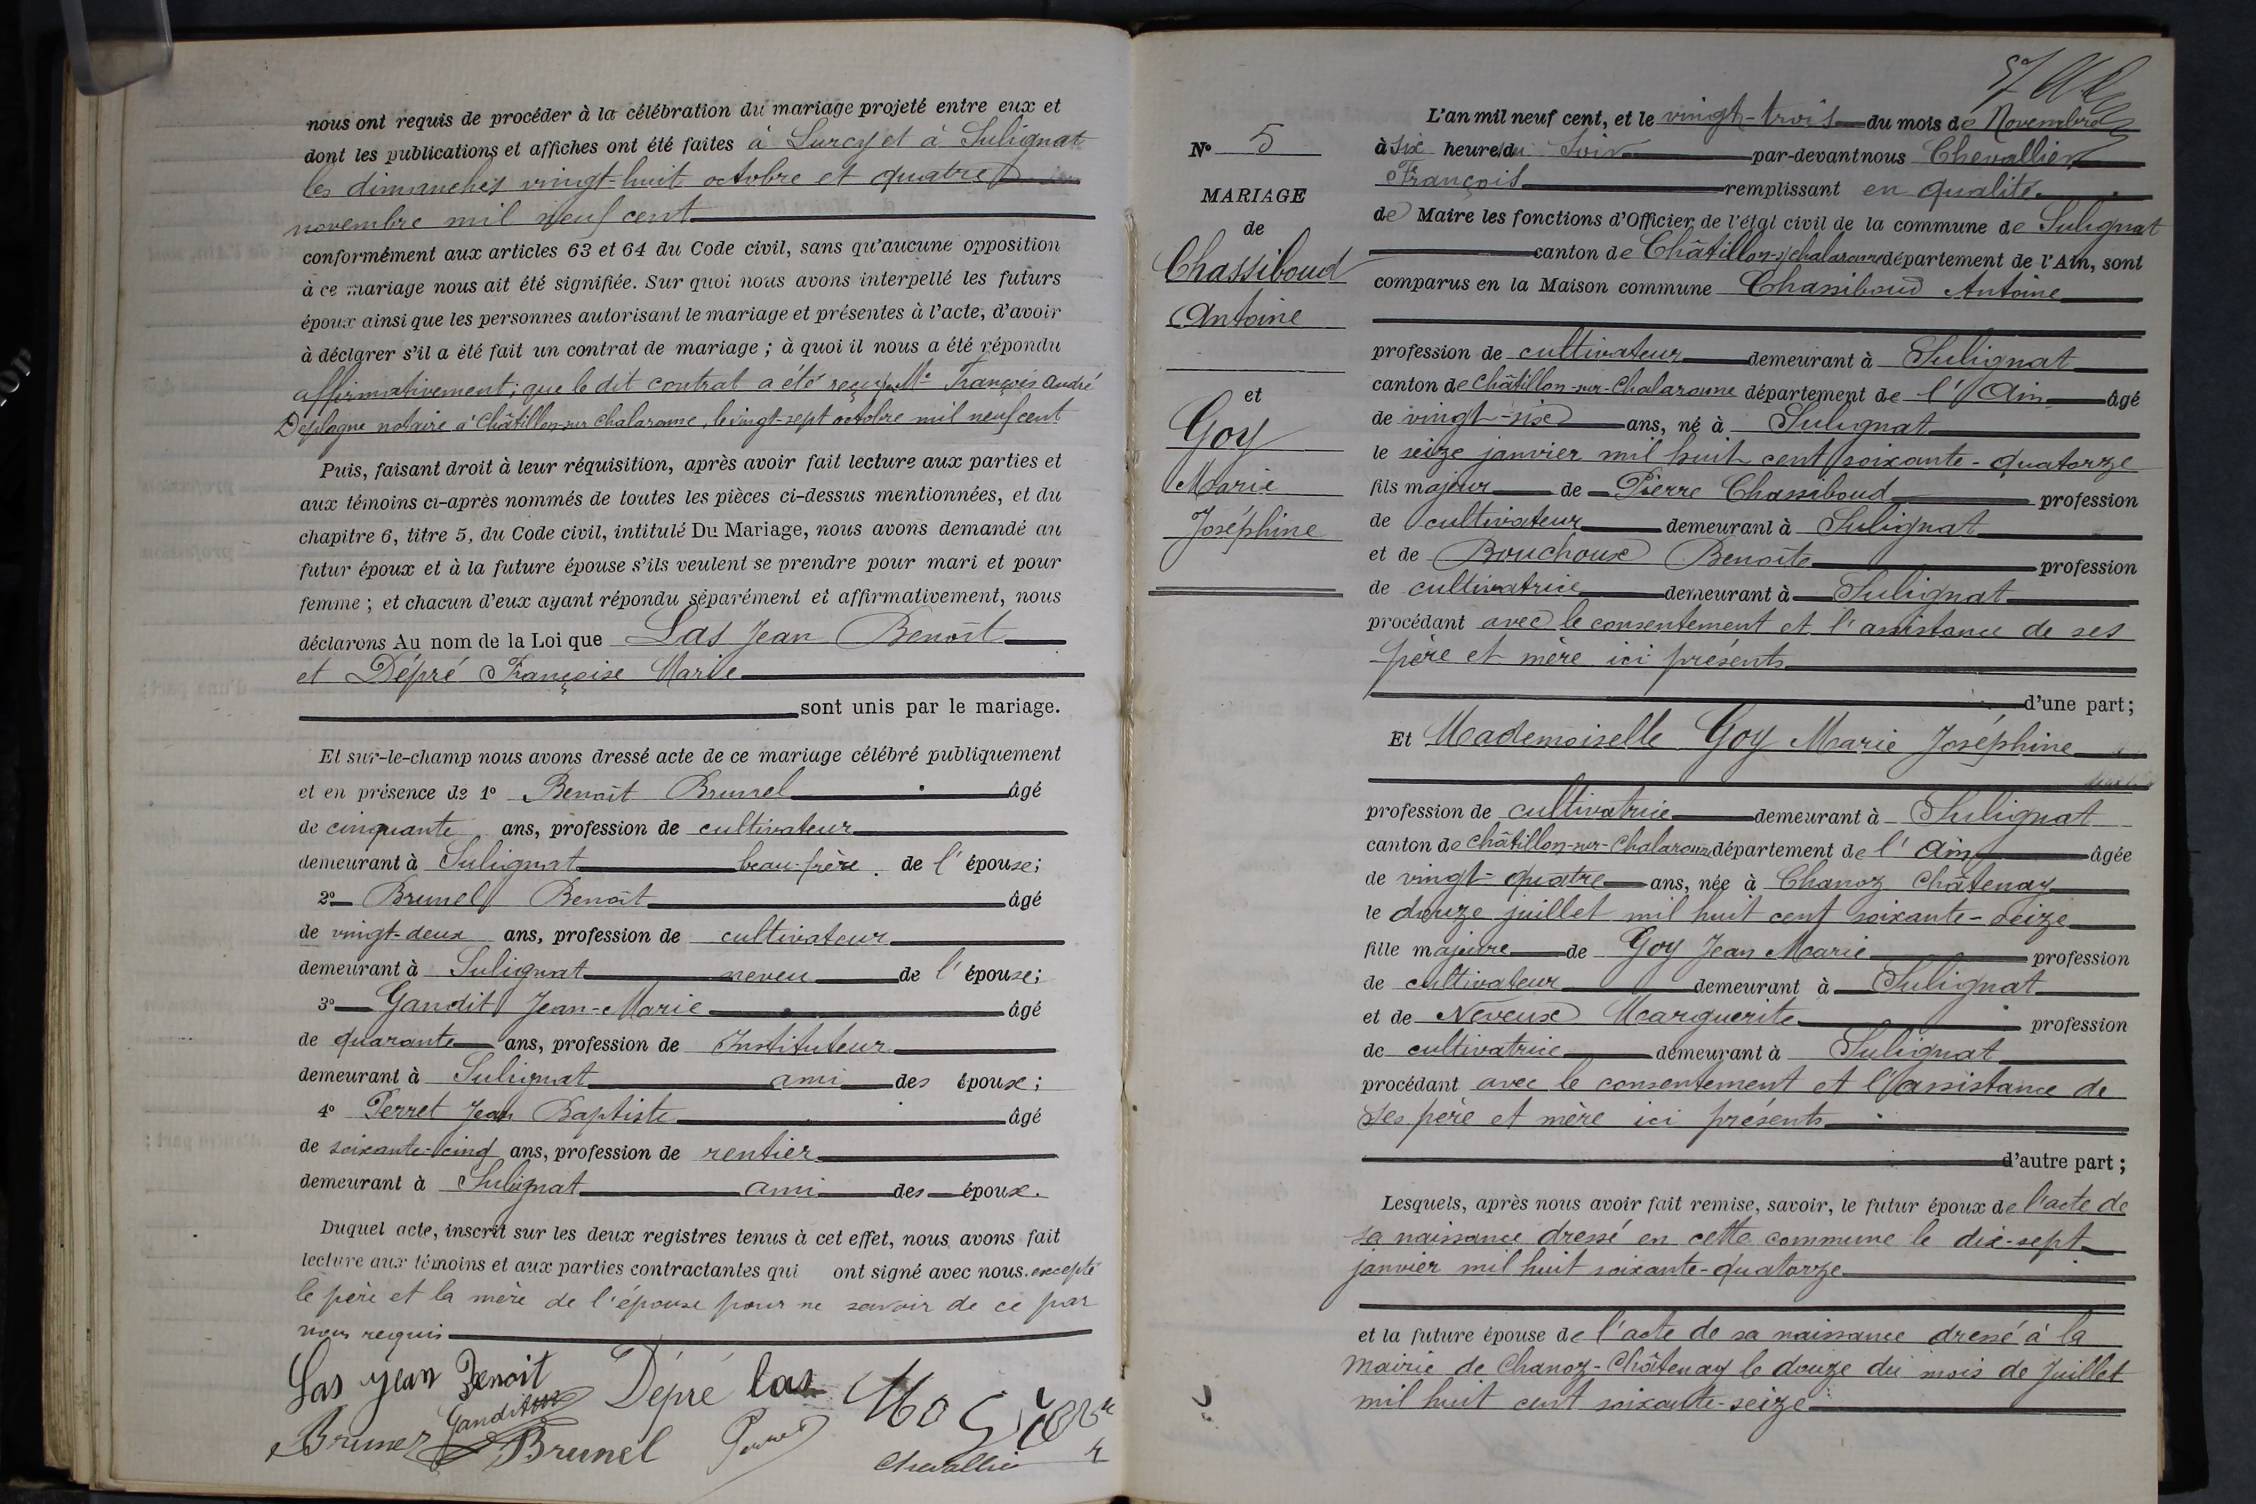 nous ont requis de procéder à la célébration du mariage projeté entre eux et
dont les publications et affiches ont été faites à Lurcy et à Sulignat
les dimanches vingt-huit octobre et quatre
novembre mil neuf cent
conformément aux articles 63 et 64 du Code civil, sans qu'aucune opposition
à ce mariage nous ait été signifiée. Sur quoi nous avons interpellé les futurs
époux ainsi que les personnes autorisant le mariage et présentes à l'acte, d'avoir
à déclarer s'il a été fait un contrat de mariage ; à quoi il nous a été répondu
affirmativement; que le dit contrat a été reçu par Me François André
Deplagne notaire à Châtillon-sur Chalaronne, le vingt-sept octobre mil neuf cent
Puis, faisant droit à leur réquisition, après avoir fait lecture aux parties et
aux témoins ci-après nommés de toutes les pièces ci-dessus mentionnées, et du
chapitre 6, titre 5, du Code civil, intitulé Du Mariage, nous avons demandé au
futur époux et à la future épouse s'ils veulent se prendre pour mari et pour
femme ; et chacun d'eux ayant répondu séparément et affirmativement, nous
déclarons Au nom de la Loi que Las Jean Benoît
et Dépré Françoise Marie
sont unis par le mariage.
Et sur-le-champ nous avons dressé acte de ce mariage célébré publiquement
et en présence de 1° Benoît Brunel âgé
de cinquante ans, profession de cultivateur
demeurant à Sulignat beau-frère de l'épouse;
2° Brunel Benoît âgé
de vingt-deux ans, profession de cultivateur
demeurant à Sulignat neveu de l'épouse;
3° Gandit Jean-Marie âgé
de quarante ans, profession de Instituteur
demeurant à Sulignat ami des époux;
4° Perret Jean Baptiste âgé
de soixante-cinq ans, profession de rentier
demeurant à Sulignat ami des époux.
Duquel acte, inscrit sur les deux registres tenus à cet effet, nous avons fait
lecture aux témoins et aux parties contractantes qui ont signé avec nous. excepté
le père et la mère de l'épouse pour ne savoir de ce par
nous requis
Las jean Benoit Dépré las
Gandit
Brunel Brunel Perret
Chevallier
57
N° 5
MARIAGE
de
Chassiboud
Antoine
et
Goy
Marie
Joséphine
L'an mil neuf cent, et le vingt-trois du mois de Novembre
à six heures du Soir par-devant nous Chevallier
François remplissant en qualité
de Maire les fonctions d'Officier de l'état civil de la commune de Sulignat
canton de Châtillon-s/chalaronne département de l'Ain, sont
comparus en la Maison commune Chassiboud Antoine
profession de cultivateur demeurant à Sulignat
canton de Châtillon-sur-Chalaronne département de l'Ain âgé
de vingt-six ans, né à Sulignat
le seize janvier mil huit cent soixante-quatorze
fils majeur de Pierre Chassiboud profession
de cultivateur demeurant à Sulignat
et de Bouchoux Benoîte profession
de cultivatrice demeurant à Sulignat
procédant avec le consentement et l'assistance de ses
père et mère ici présents
d'une part;
Et Mademoiselle Goy Marie Joséphine
profession de cultivatrice demeurant à Sulignat
canton de Châtillon-sur-Chalaronne département de l'Ain âgée
de vingt-quatre ans, née à Chanoz Châtenay
le douze juillet mil huit cent soixante-seize
fille majeure de Goy Jean Marie profession
de cultivateur demeurant à Sulignat
et de Neveux Marguerite profession
de cultivatrice demeurant à Sulignat
procédant avec le consentement et l'assistance de
ses père et mère ici présents
d'autre part;
Lesquels, après nous avoir fait remise, savoir, le futur époux de l'acte de
sa naissance dressé en cette commune le dix-sept
janvier mil huit soixante-quatorze
et la future épouse de l'acte de sa naissance dressé à la
mairie de Chanoz-Châtenay le douze du mois de Juillet
mil huit cent soixante-seize